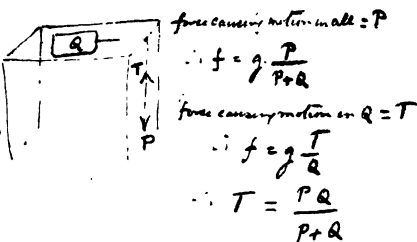 Q
T
P
force causing motion in all = P
∴ f = g. P/P+Q
force causing motion in Q = T
∴ f = g T/Q
∴ T = PQ/P+Q